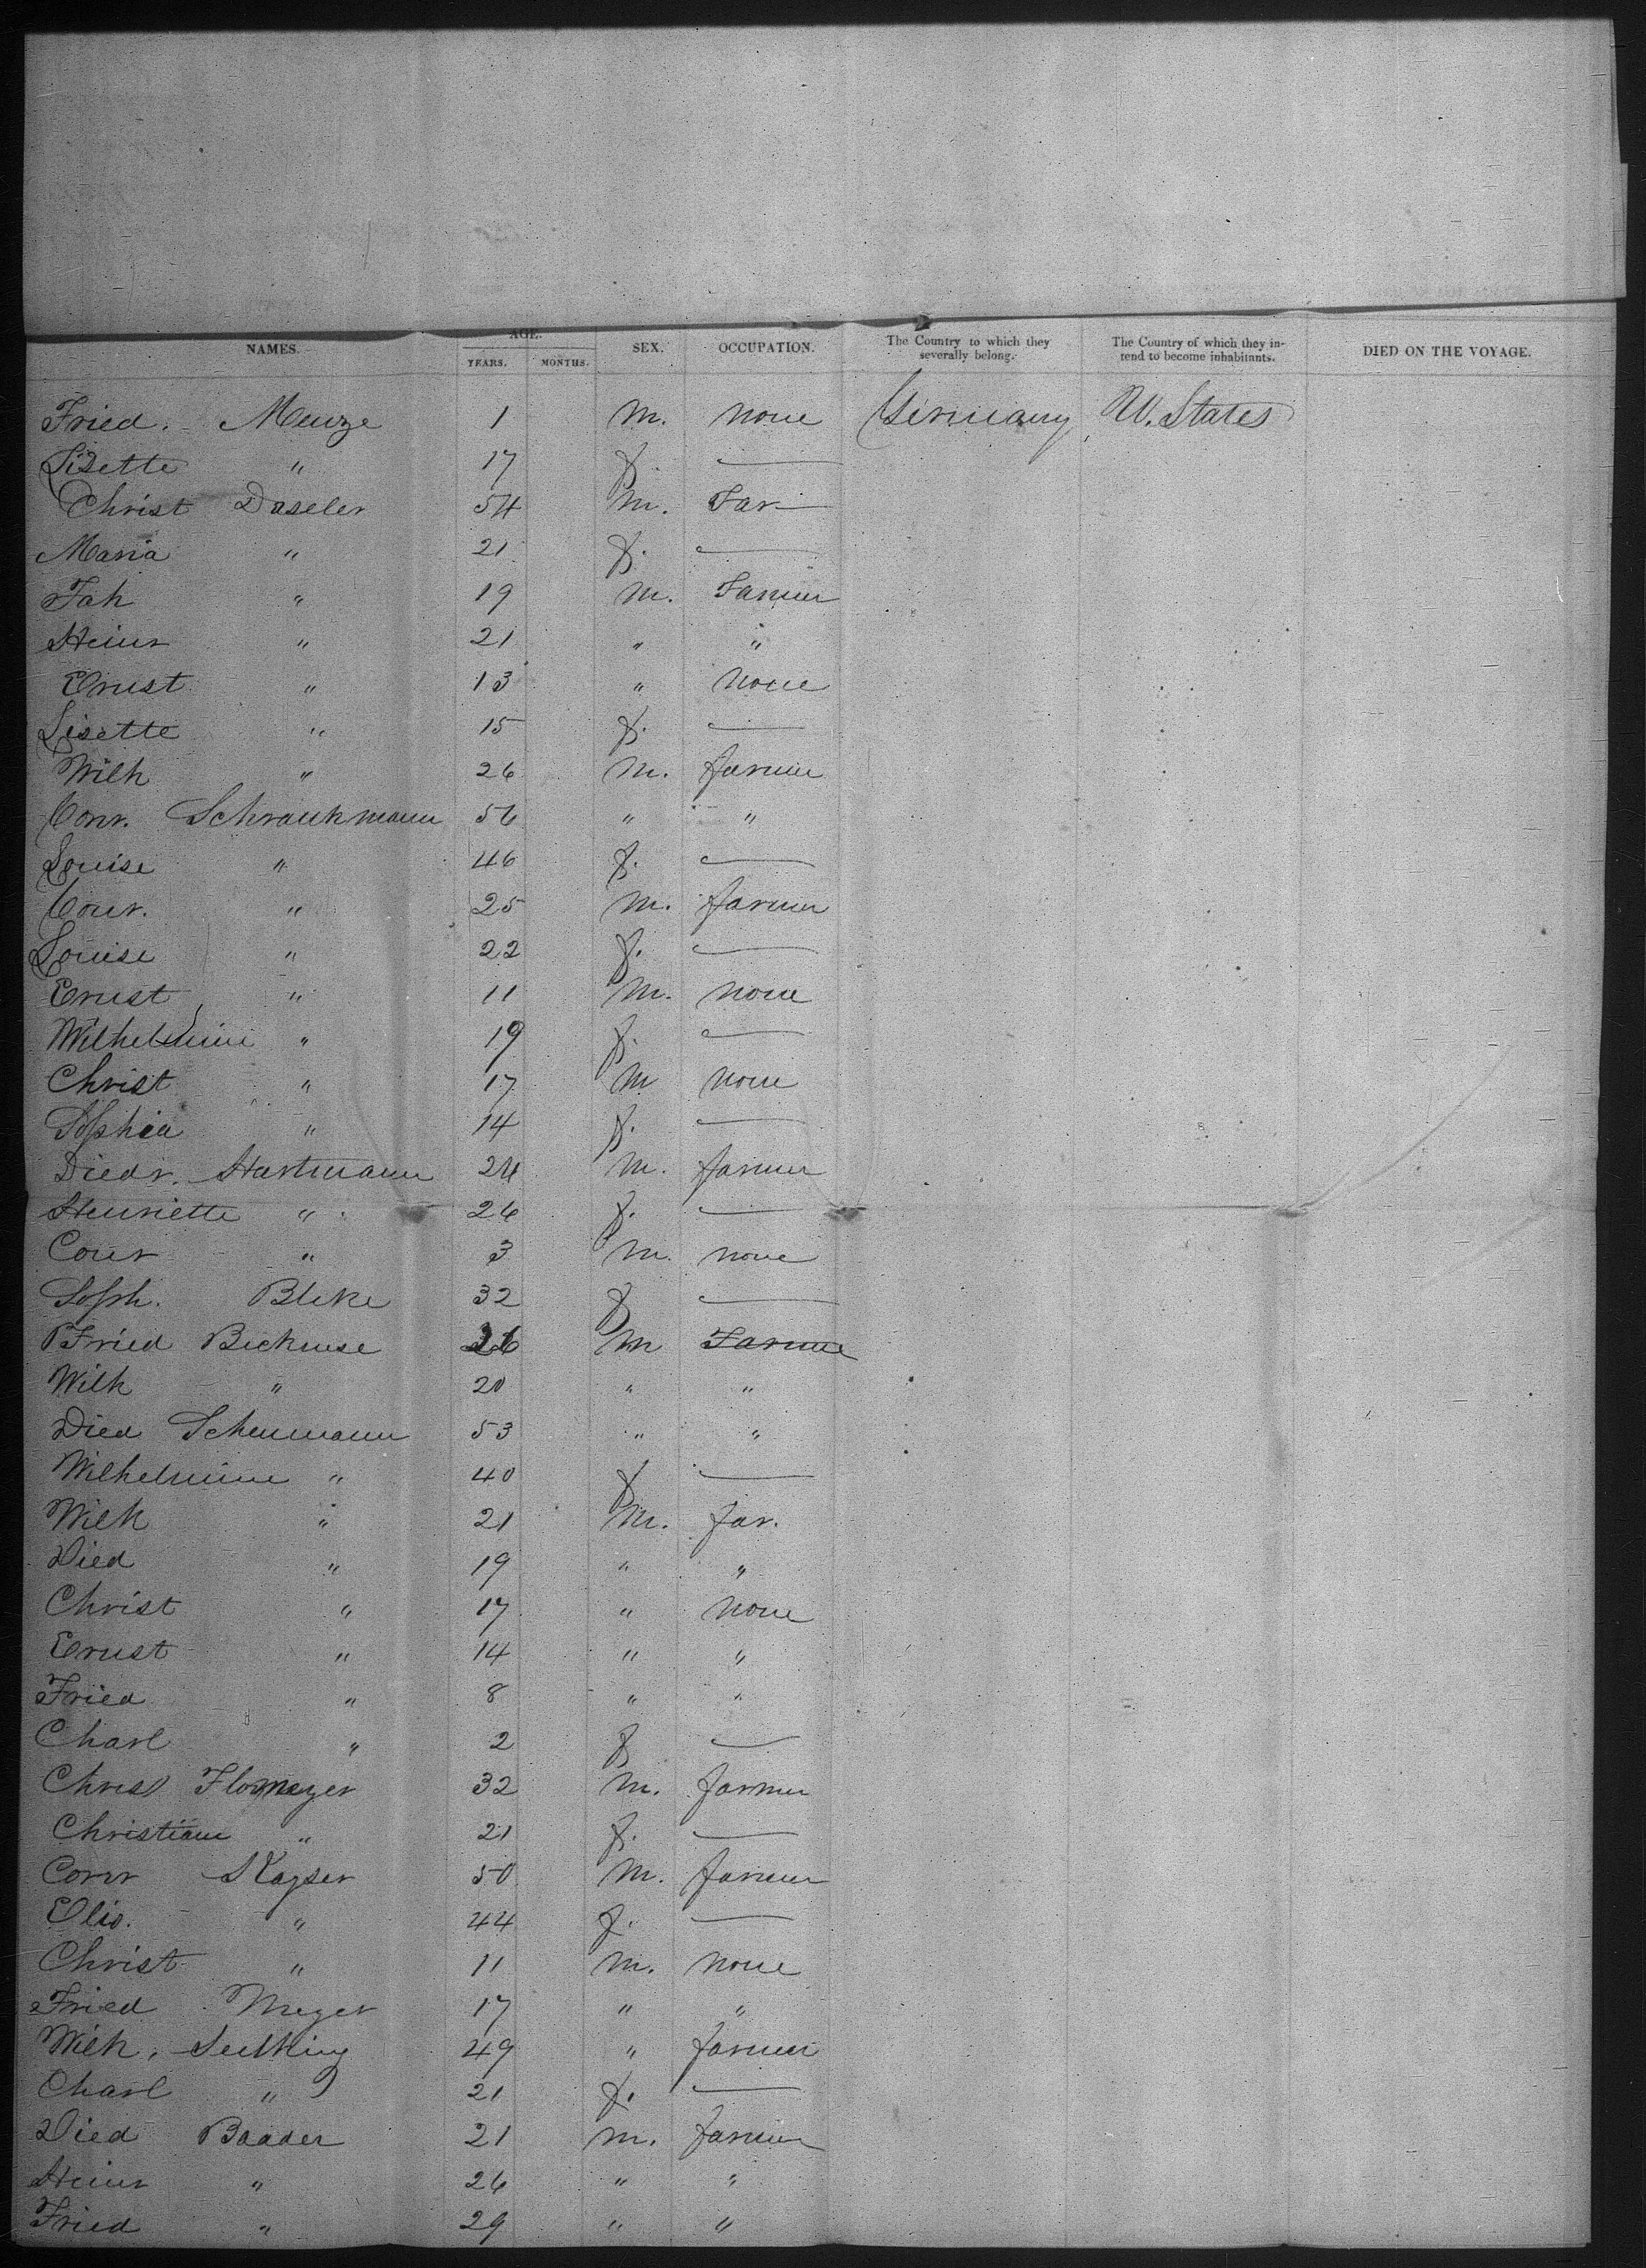 NAMES. AGE. SEX. OCCUPATION. The Country to which they severally belong. The Country of which they intend to become inhabitants. DIED ON THE VOYAGE.
YEARS. MONTHS.
Fried. Menze 1 m. none Germany U. States
Lisette " 17 f. —
Christ Daseler 54 m. Far
Maria " 21 f. —
" 19 m. Farmer
Heinr " 21 " "
Ernst " 13 " none
Lisette " 15 f. —
Wilh " 26 m. farmer
Conr. Schrankmann 56 " "
Louise " 46 f. —
Conr. " 25 m. farmer
Louise " 22 f. —
Ernst " 11 m. none
Wilhelmine " 19 f. —
Christ " 17 m none
Sophia " 14 f. —
Diedr. Hartmann 24 m. farmer
Henriette " 26 f. —
Conr " 3 m. none
Soph. Bleke 32 f —
Fried 26 m Farmer
Wilh " 20 " "
Died Scheumann 53 " "
Wilhelmine " 40 f —
Wilh " 21 m. far.
Died " 19 " "
Christ " 17 " none
Ernst " 14 " "
Fried " 8 " "
Charl " 2 f —
Christ 32 m. farmer
Christiane " 21 f. —
Conr Kayser 50 m. farmer
Elis. " 44 f. —
Christ " 11 m. none
Fried Meyer 17 " "
Wilh. 49 " farmer
Charl " 21 f. —
Died Baader 21 m. farmer
Heinr " 26 " "
Fried " 29 " "